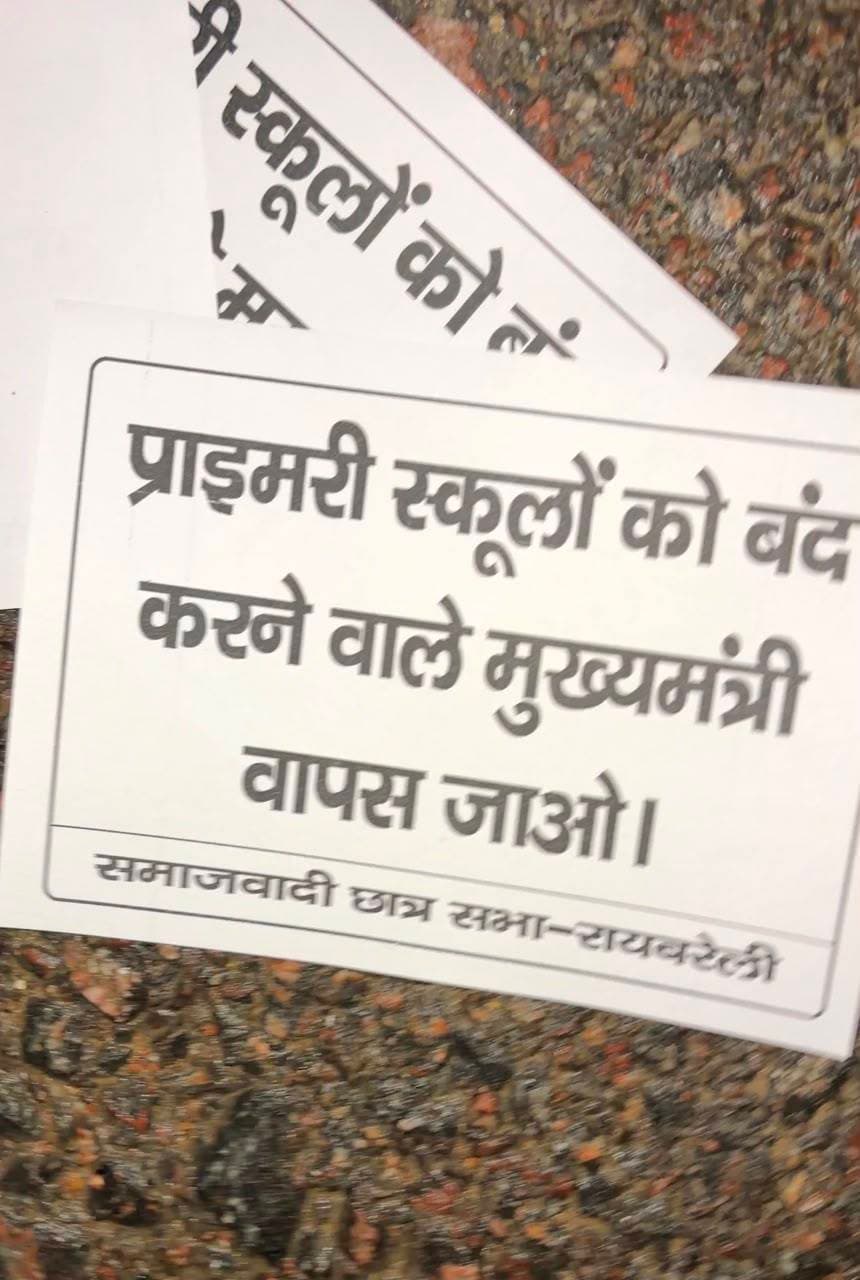 स्कूलों को बं
प्राइमरी स्कूलों को बंद
करने वाले मुख्यमंत्री
वापस जाओ।
समाजवादी छात्र सभा-रायबरेली